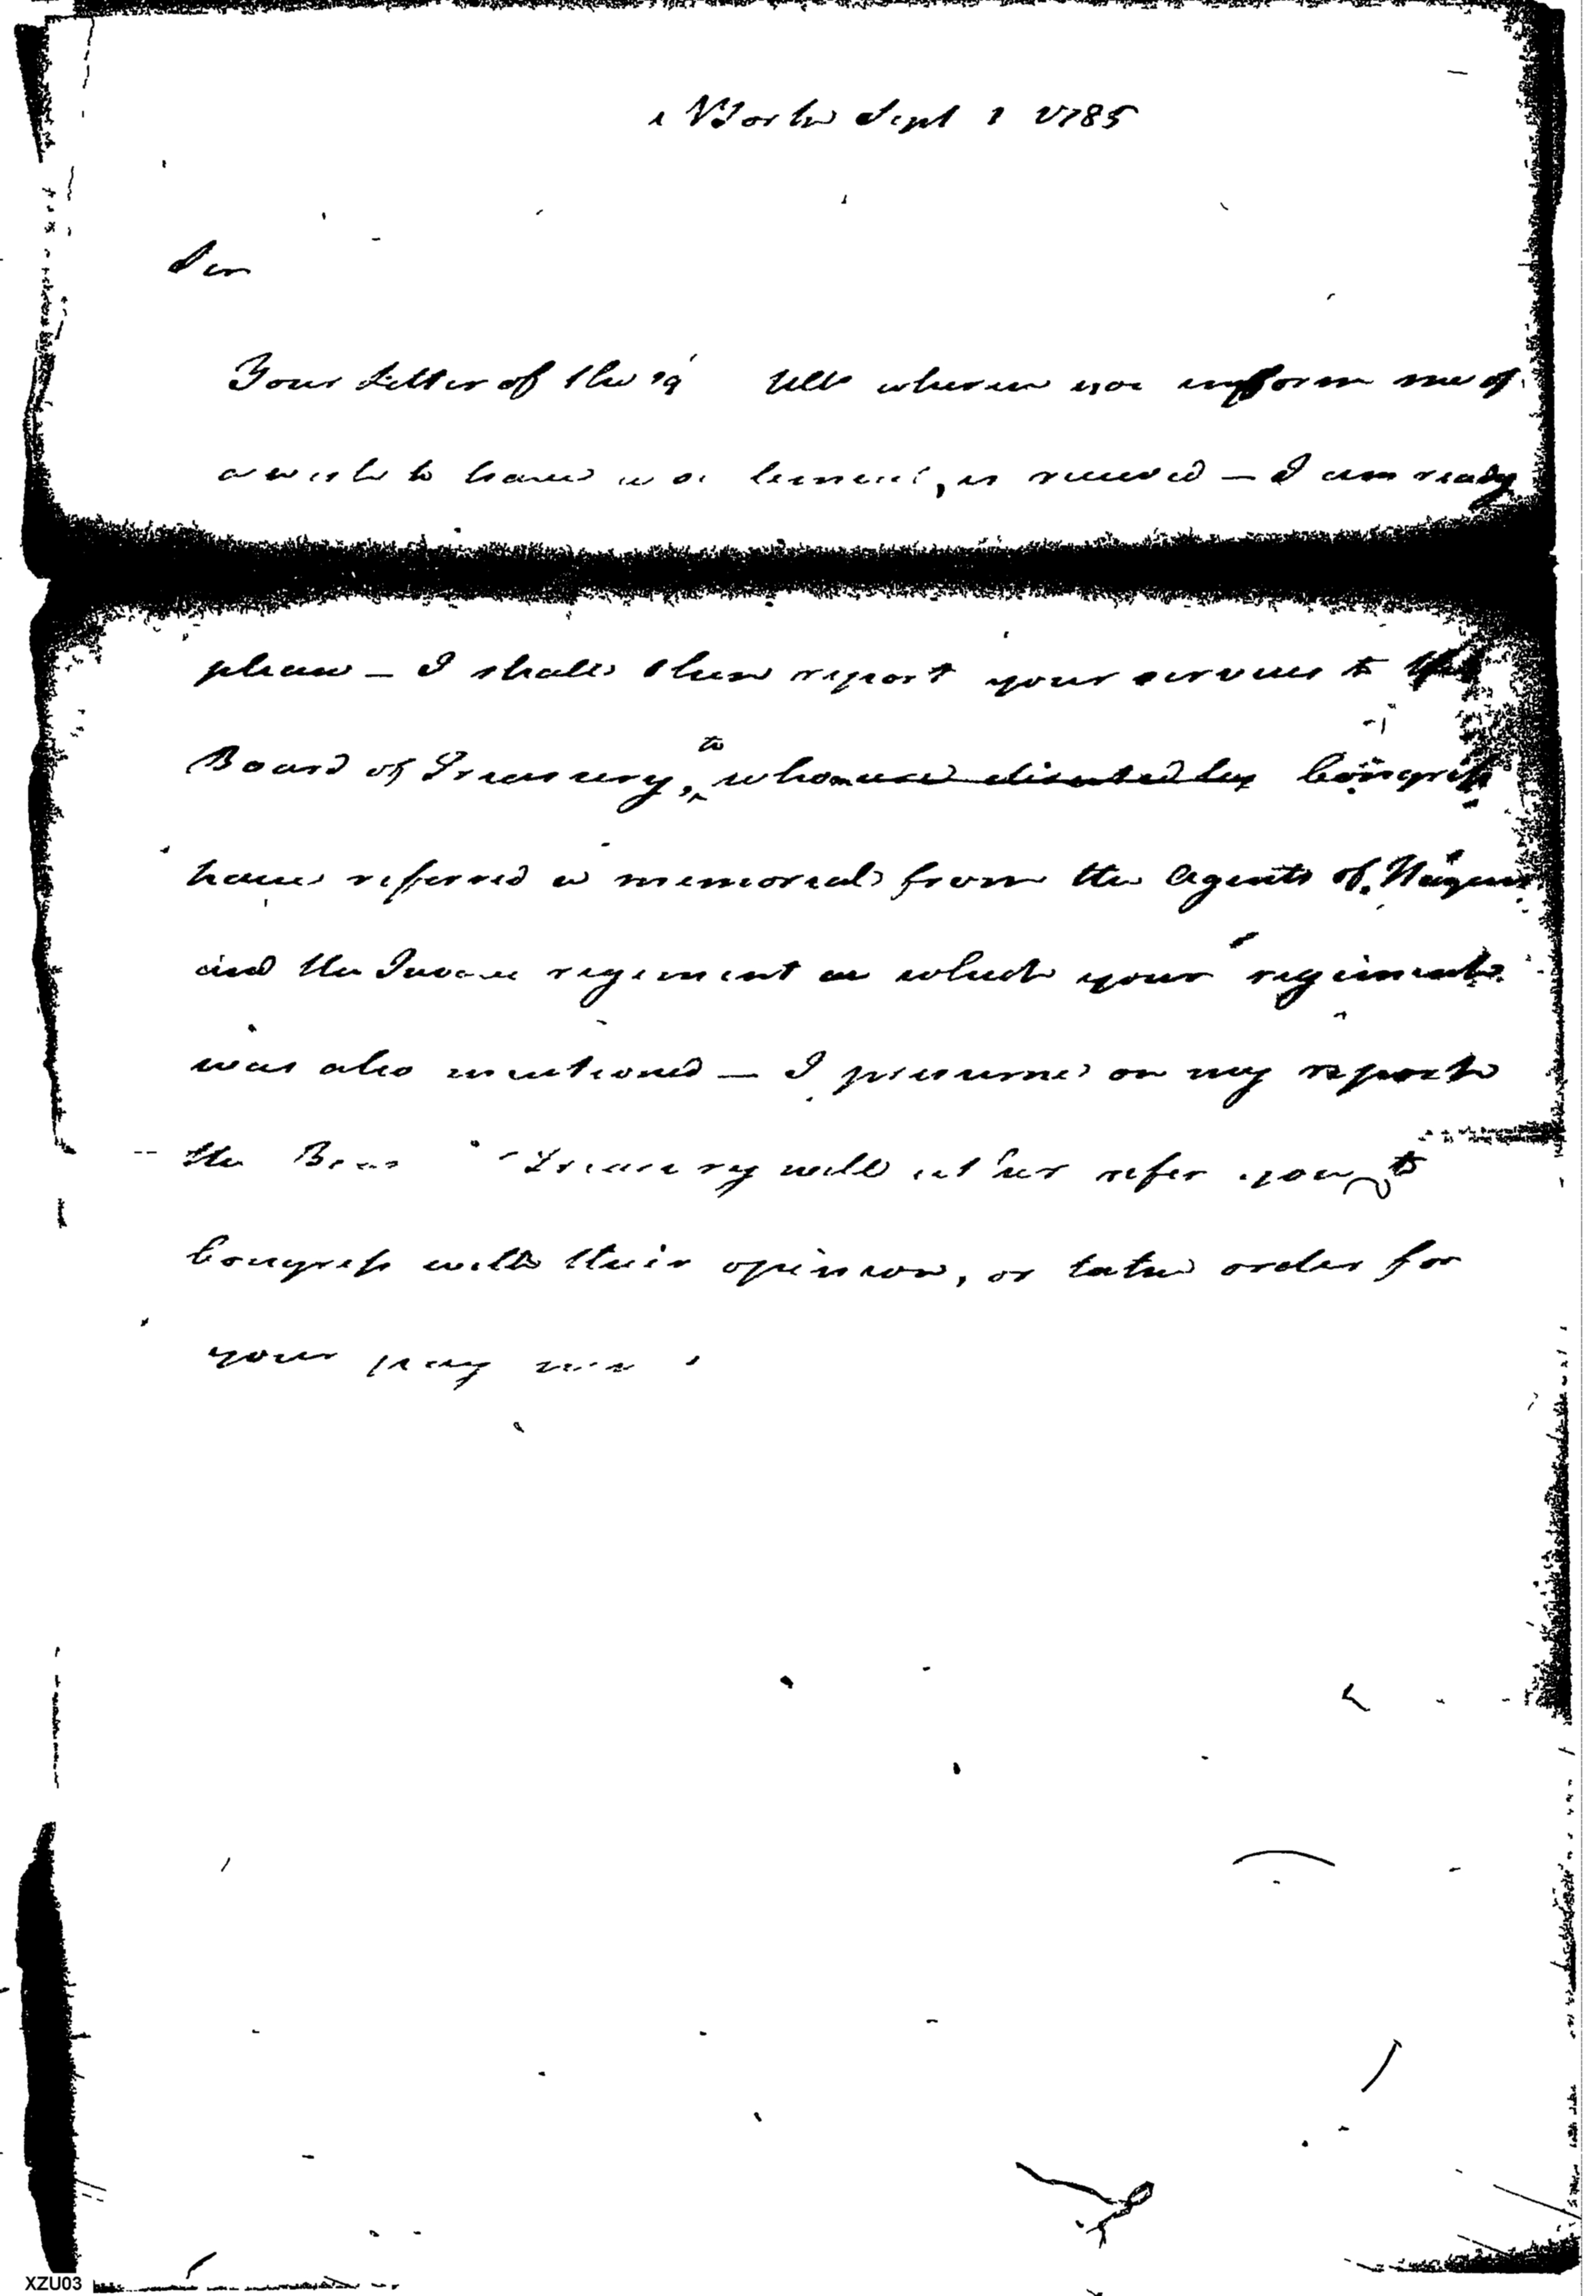 N York Sept 1 1785
Sir
Your Letter of the 19 Ulto wherein you inform me of
a wish to have a settlement, is received — I am ready
please — I shall then report your services to the
Board of Treasury, to whom was directed by Congress
have referred a memorial from the Agents of Hazens
and the Invalid regiment in which your regiment
was also mentioned — I presume on my report
the Board Treasury will either refer you to
Congress with their opinion, or take order for
your pay
XZU03